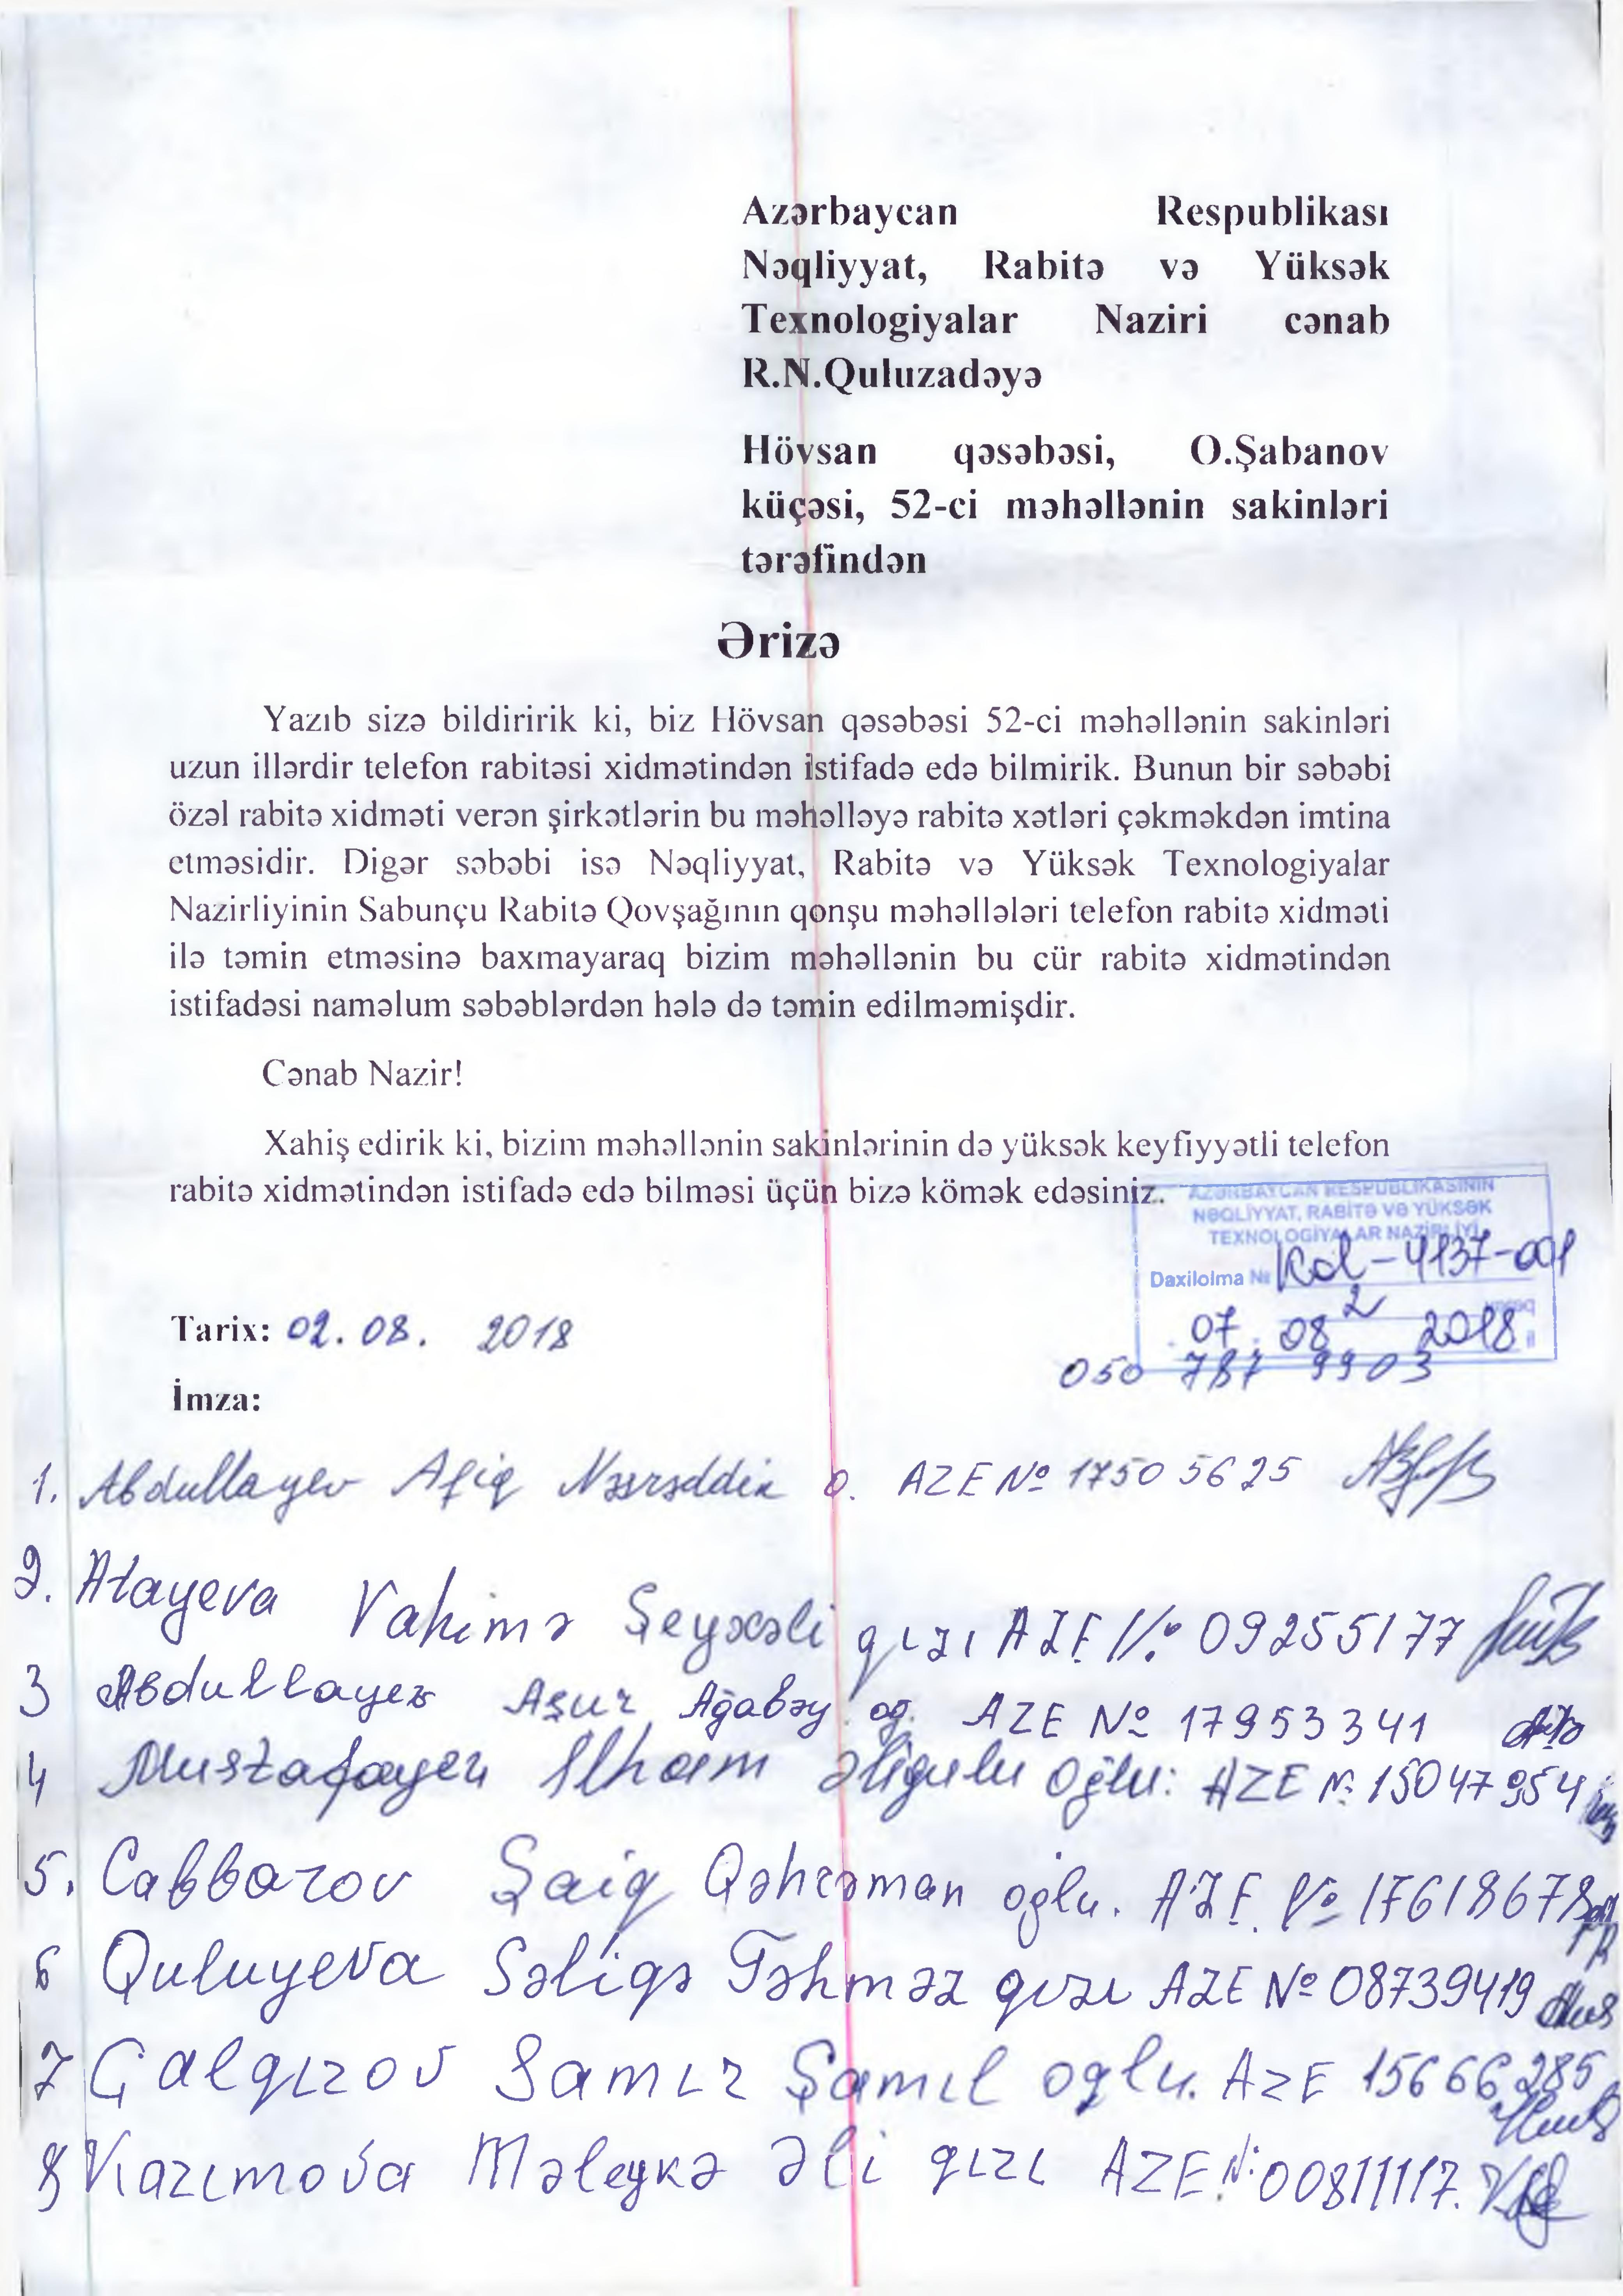 Azərbaycan Respublikası
Nəqliyyat, Rabitə və Yüksək
Texnologiyalar Naziri cənab
R.N.Quluzadəyə
Hövsan qəsəbəsi, O.Şabanov
küçəsi, 52-ci məhəllənin sakinləri
tərəfindən
Ərizə
Yazıb sizə bildiririk ki, biz Hövsan qəsəbəsi 52-ci məhəllənin sakinləri
uzun illərdir telefon rabitəsi xidmətindən istifadə edə bilmirik. Bunun bir səbəbi
özəl rabitə xidməti verən şirkətlərin bu məhəlləyə rabitə xətləri çəkməkdən imtina
etməsidir. Digər səbəbi isə Nəqliyyat, Rabitə və Yüksək Texnologiyalar
Nazirliyinin Sabunçu Rabitə Qovşağının qonşu məhəllələri telefon rabitə xidməti
ilə təmin etməsinə baxmayaraq bizim məhəllənin bu cür rabitə xidmətindən
istifadəsi naməlum səbəblərdən hələ də təmin edilməmişdir.
Cənab Nazir!
Xahiş edirik ki, bizim məhəllənin sakinlərinin də yüksək keyfiyyətli telefon
rabitə xidmətindən istifadə edə bilməsi üçün bizə kömək edəsiniz.
AZƏRBAYCAN RESPUBLİKASININ
NƏQLİYYAT, RABİTƏ VƏ YÜKSƏK
TEXNOLOGİYALAR NAZİRLİYİ
Daxilolma № Kol-4137-001
2 vərəq
07. 08 2018 il
Tarix: 02.08. 2018
050 787 9903
İmza:
1. Abdullayev Afiq Nəsrəddin o. AZE № 17505625
2. Atayeva Vahimə Şeyxəli qızı AZE № 09255177
3 Abdullayev Aşur Ağabəy og. AZE № 17953341
4 Mustafayev Ilham Əliqulu oğlu: AZE № 15047954
5. Cabbarov Şaiq Qəhrəman oglu. AZE № 17618678
6 Quluyeva Səliqə Təhməz qızı AZE № 08739419
7 Çalqızov Samır Şamıl oglu. AZE 15666285
8 Kazımova Məleykə Əli qızı AZE № 00811117.